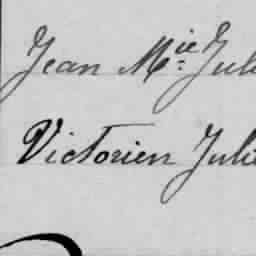 Jean M.ie Juli
Victorien Julie